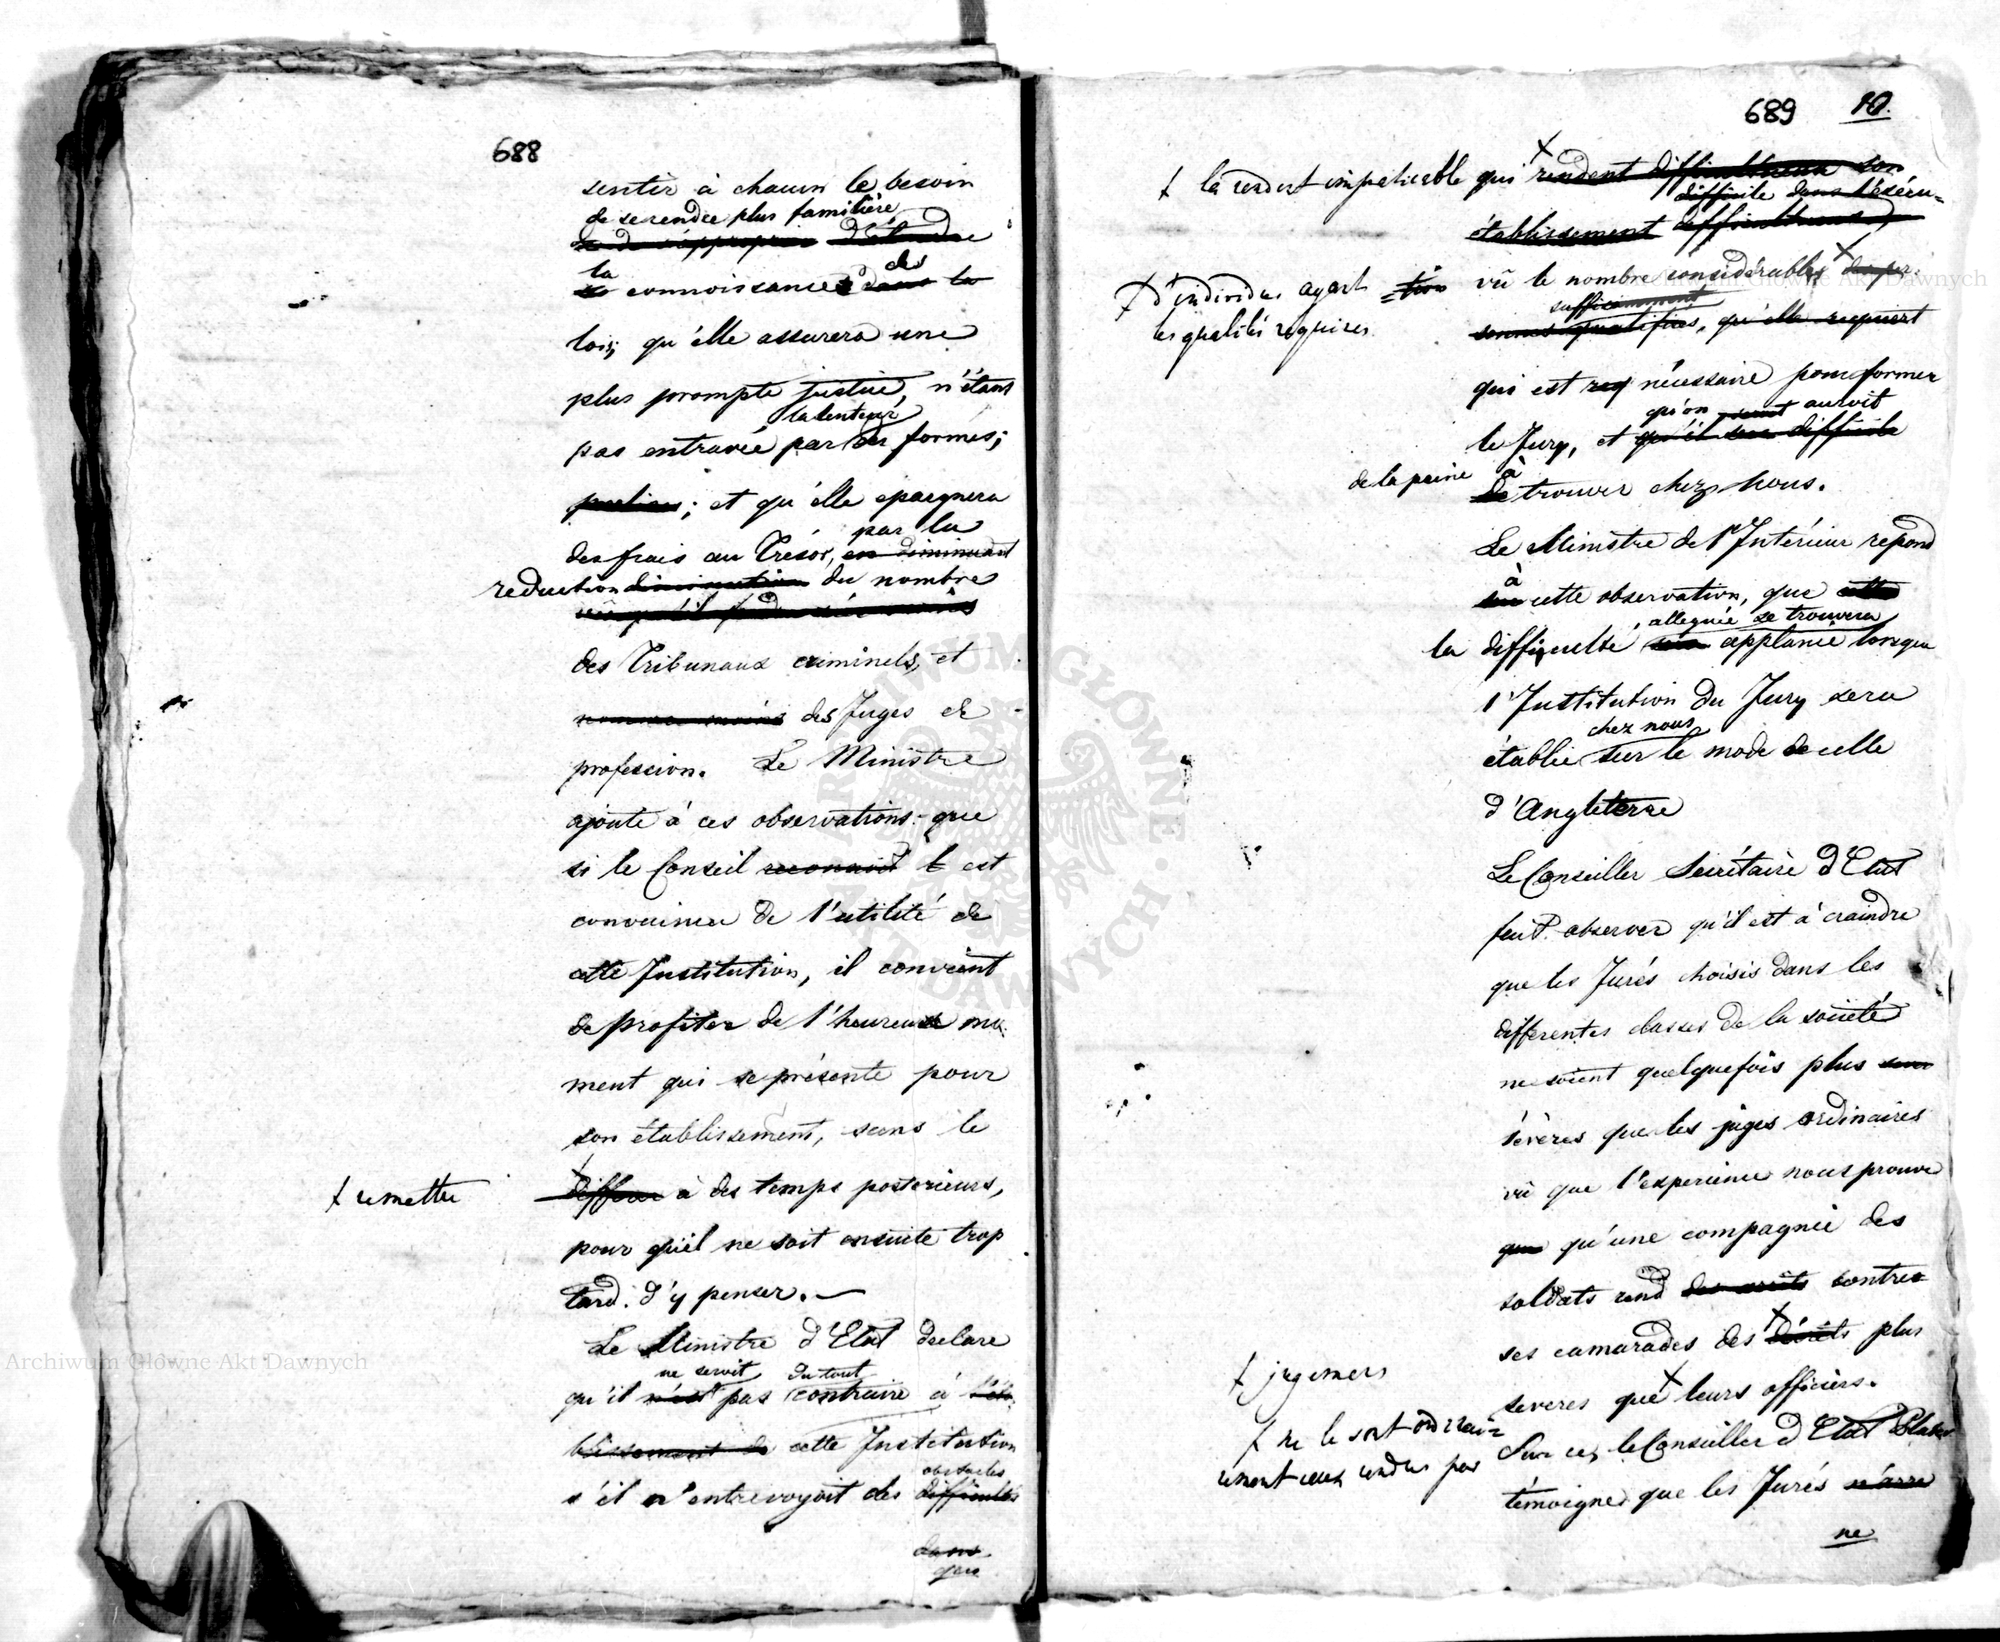 688
sentir à chacun le besoin
de se rendre plus familière
d'étendre
la connoissance des
loix, qu'elle assurera une
plus prompte justice, n'étant
la lenteur
pas entravée par des formes;
; et qu'elle epargnera
par la
des frais au Trésor, en diminuant
reduction diminution du nombre
des Tribunaux criminels, et
des Juges de
profession. Le Ministre
ajoute à ces observations que
si le Conseil est
convaincu de l'utilité de
cette Institution, il convient
de profiter de l'heureux mo-
ment qui se présente pour
son établissement, sans le
† remettre
differer à des temps posterieurs,
pour qu'il ne soit ensuite trop
tard d'y penser.
Le Ministre d'Etat declare
ne seroit du tout
qu'il n'est pas contraire à l'éta-
blissement de cette Institution
obstacles
s'il n'entrevoyoit des difficultés
dans
que
689 10.
† la rendent impraticable qui rendent difficultueux son
difficile dans l'éxécu=
établissement difficultueux,
† d'individus ayant les qualités requises
=tion vû le nombre considérable des per-
suffisamment
sonnes qualifiées, qu'elle requiert
qui est req nécessaire pour former
qu'on auroit
le Jury, et qu'il sera difficile
de la peine à
de trouver chez nous.
Le Ministre de l'Intérieur repond
à
cette observation, que cette
alleguée se trouvera
la difficulté sera applanie lorsque
l'Institution du Jury sera
chez nous
établie sur le mode de celle
d'Angleterre
Le Conseiller Secrétaire d'Etat
fait observer qu'il est à craindre
que les Jurés choisis dans les
differentes classes de la société
ne soient quelquefois plus
sévères que les juges ordinaires
vû que l'experience nous prouve
que qu'une compagnie des
soldats rend des arrêts contre
ses camarades des décrets plus
† jugemens
severes que leurs officiers.
† ne le sont ordinai=
rement ceux rendus par
Sur ce, le Conseiller d'Etat
témoigne que les Jurés
ne